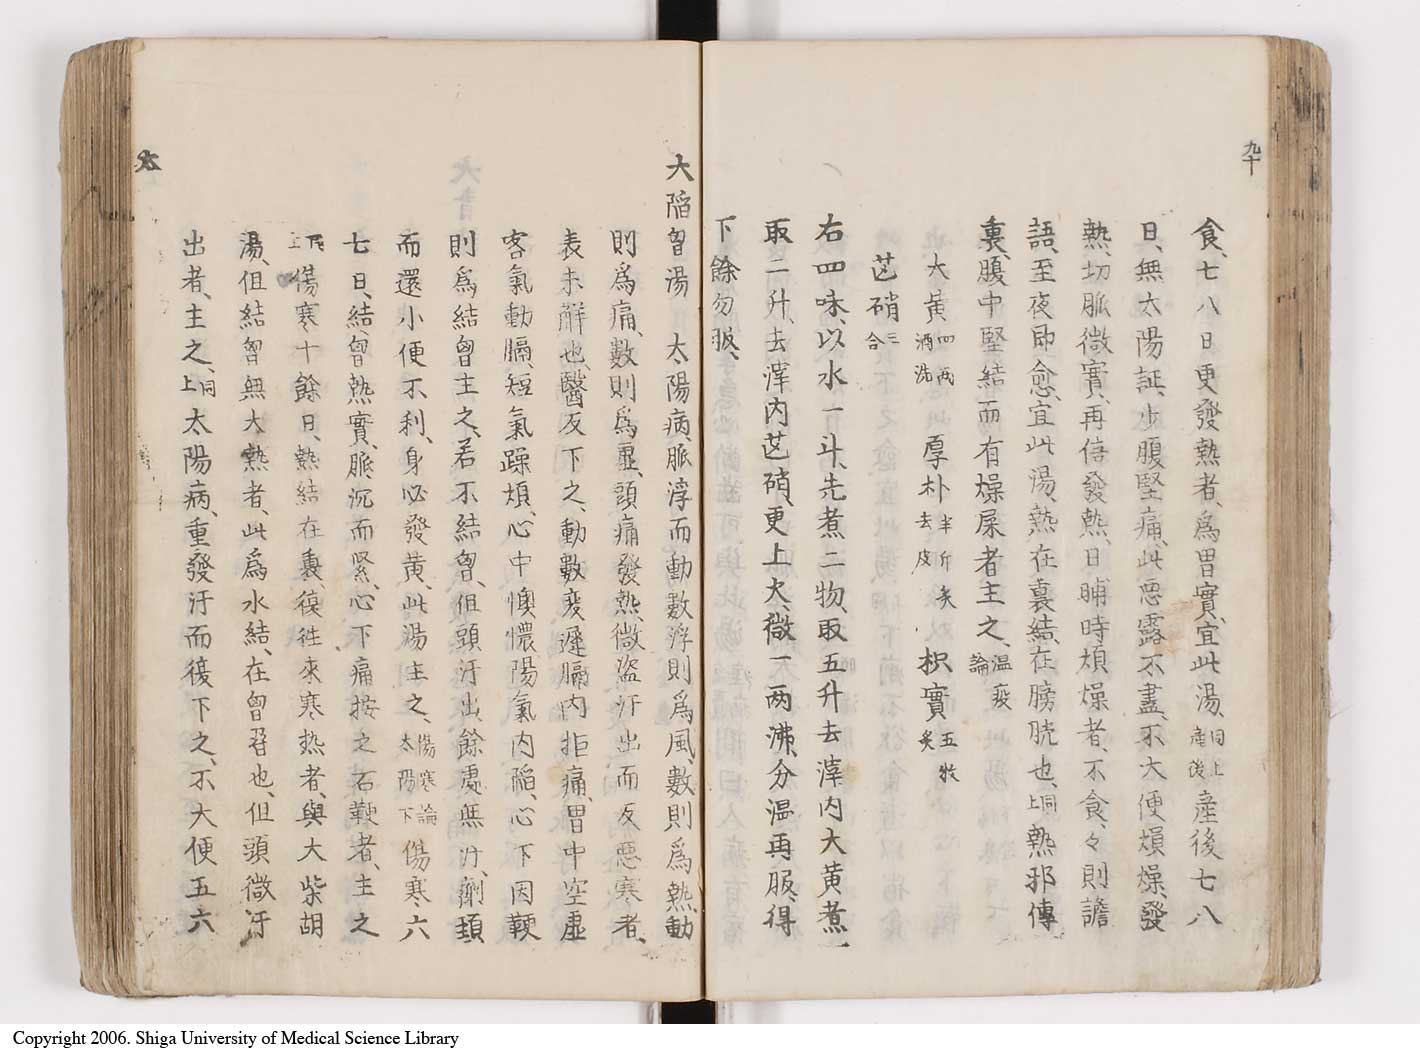 九十
食、七八日更發熱者、爲胃實、宜此湯、同上產後產後七八
日、無太陽証、少腹堅痛、此惡露不盡、不大便煩燥、發
熱、切脈微實、再倍發熱、日晡時煩燥者、不食、々則譫
語、至夜即愈、宜此湯、熱在裏、結在膀胱也、同上熱邪傳
裏、腹中堅結而有燥屎者主之、温疫論
大黃四兩酒洗 厚朴半斤炙去皮 枳實五枚炙
芒硝三合
右四味、以水一斗、先煮二物、取五升去滓、内大黃煮
取二升、去滓内芒硝、更上火、微一两沸、分温再服、得
下餘勿服、
大陷胷湯 太陽病、脈浮而動數、浮則爲風、數則爲熱、動
則爲痛、數則爲虛、頭痛發熱、微盜汗出而反惡寒者、
表未解也、醫反下之、動數変遲、膈内拒痛、胃中空虛
客氣動膈、短氣躁煩、心中懊憹、陽氣内陷、心下因鞕
則爲結胷主之、若不結胷、但頭汗出、餘處無汗、劑頚
而還、小便不利、身必發黄、此湯主之、傷寒論太陽下傷寒六
七日、結胷熱實、脈沉而緊、心下痛按之石鞕者、主之
同上傷寒十餘日、熱結在裏、復徃来寒热者、與大柴胡
湯、但結胷無大熱者、此爲水結、在胷脅也、但頭微汗
出者、主之、同上太陽病、重發汗而復下之、不大便五六